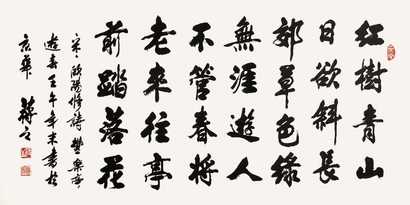 紅樹青山
日欲斜長
郊草色緑
無涯遊人
不管春将
老来往亭
前踏落花
宋歐陽修詩豐樂亭
遊春壬午年末書於
京華